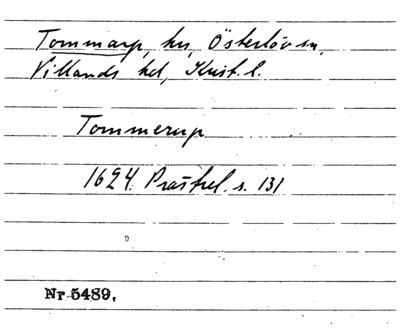 Tommarp, hs, Österlöv sn,
Villands hd, Krist. l.
Tommerup
1624. Praestrel. s. 131
Nr 5489.